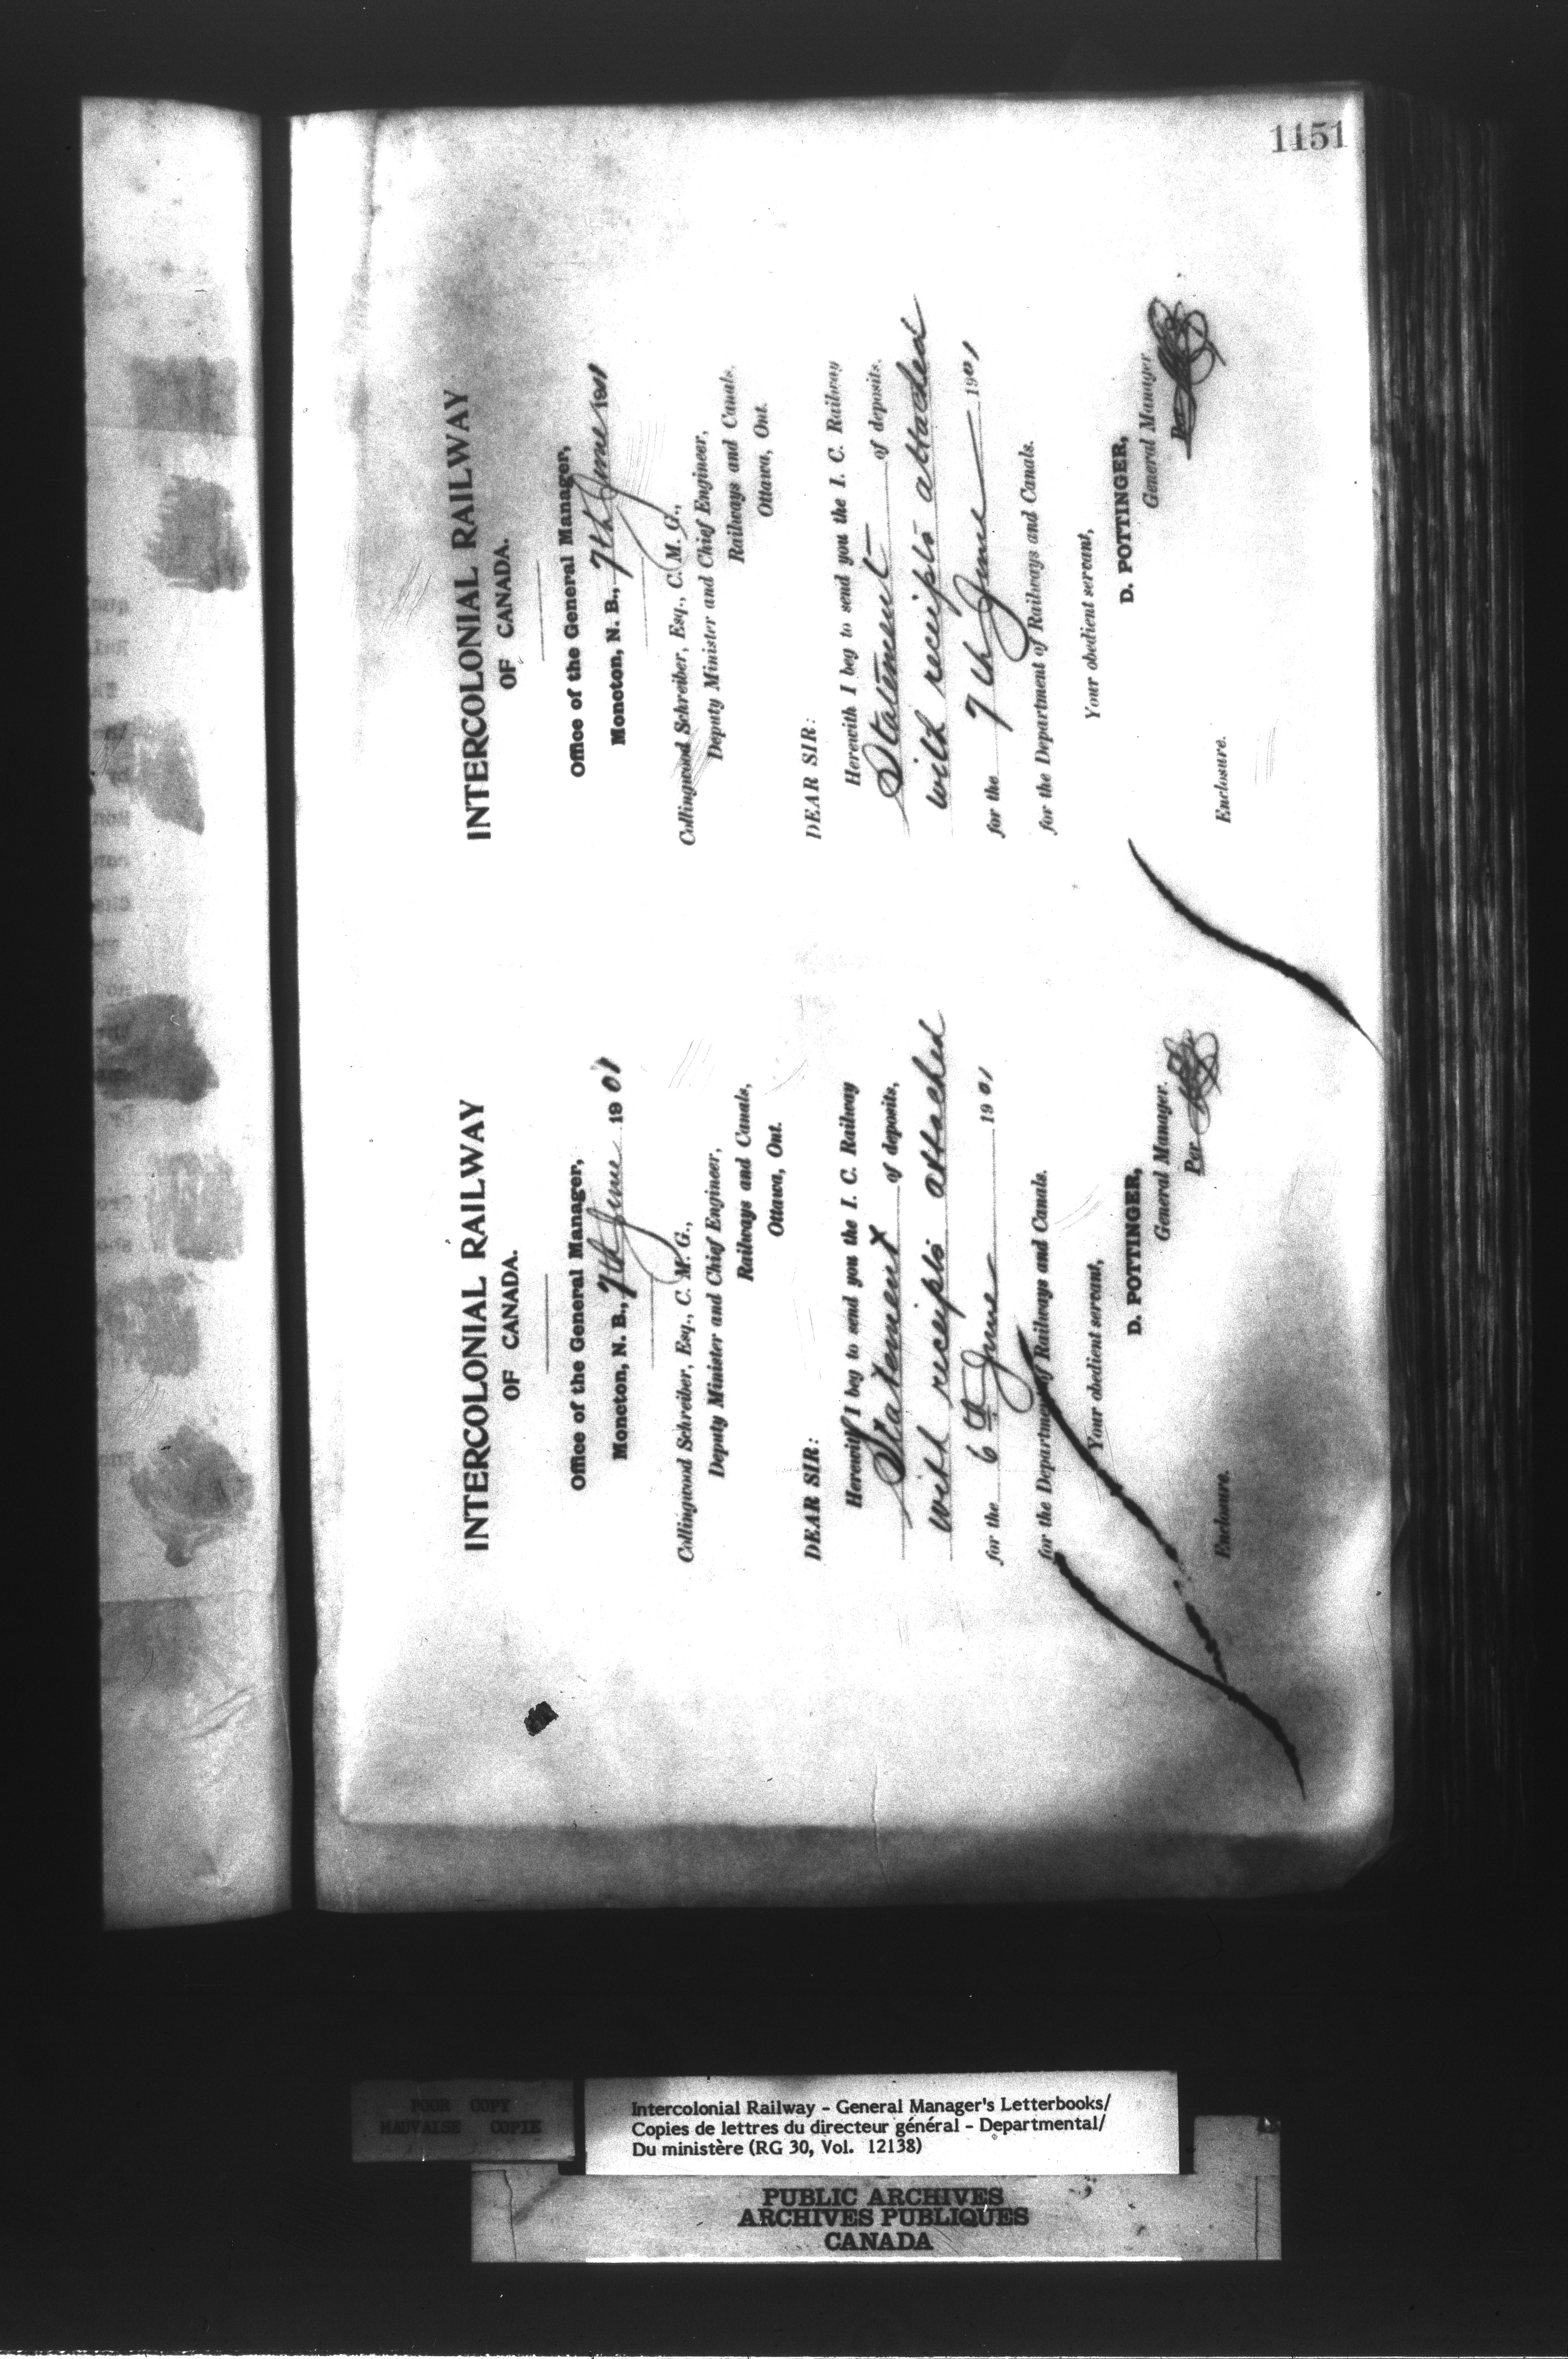 1151
INTERCOLONIAL RAILWAY
OF CANADA.
Office of the General Manager,
Moncton, N. B., 7th June 1901
Collingwood Schreiber, Esq., C. M. G.,
Deputy Minister and Chief Engineer,
Railways and Canals,
Ottawa, Ont.
DEAR SIR:
Herewith I beg to send you the I. C. Railway
Statement of deposits,
with receipts attached
for the 6th June 1901
for the Department of Railways and Canals.
Your obedient servant,
D. POTTINGER,
General Manager.
Per
Enclosure.
INTERCOLONIAL RAILWAY
OF CANADA.
Office of the General Manager,
Moncton, N. B., 7th June 1901
Collingwood Schreiber, Esq., C. M. G.,
Deputy Minister and Chief Engineer,
Railways and Canals,
Ottawa, Ont.
DEAR SIR:
Herewith I beg to send you the I. C. Railway
Statement of deposits,
with receipts attached
for the 7th June 1901
for the Department of Railways and Canals.
Your obedient servant,
D. POTTINGER,
General Manager
Per
Enclosure.
POOR COPY
MAUVAISE COPIE
Intercolonial Railway - General Manager's Letterbooks/
Copies de lettres du directeur général - Departmental/
Du ministère (RG 30, Vol. 12138)
PUBLIC ARCHIVES
ARCHIVES PUBLIQUES
CANADA